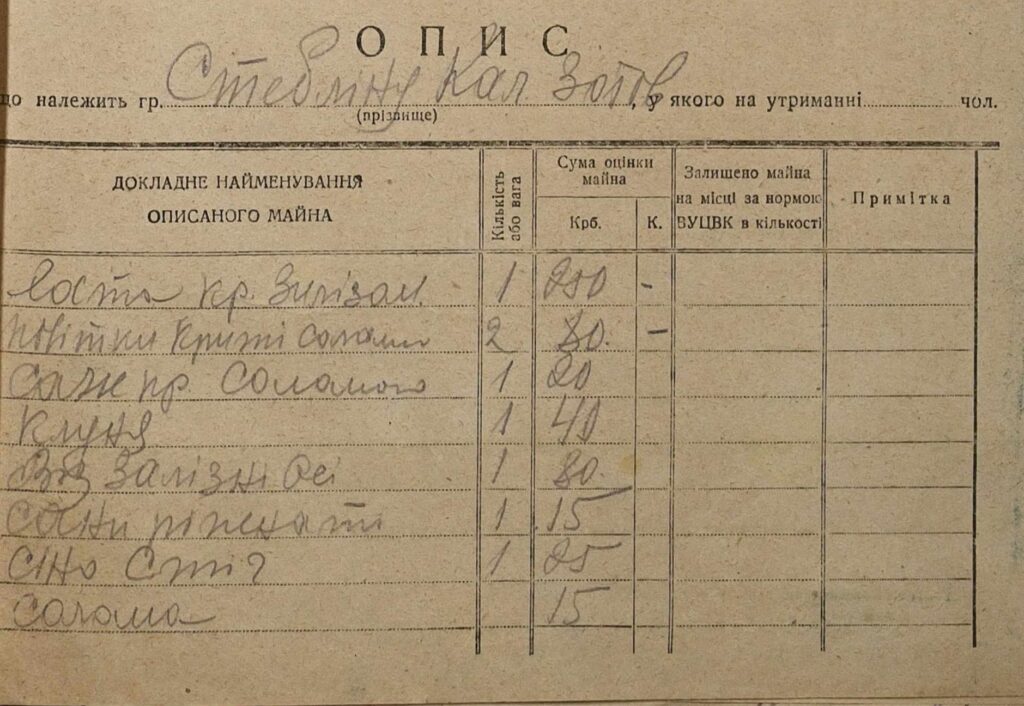 ОПИС
що належить гр. Стебліну Кал. Зотов, у якого на утриманні чол.
(прізвище)
ДОКЛАДНЕ НАЙМЕНУВАННЯ ОПИСАНОГО МАЙНА
Кількість або вага
Сума оцінки майна
Крб.
К.
Залишено майна на місці за нормою ВУЦВК в кількості
Примітка
кр. 1 250 -
повітки криті солом 2 80. -
кр. Соломою 1 20
Клуня 1 40
Віз Залізні осі 1 80.
Сани 1 15
Сіно Стіг 1 25
Солома 15